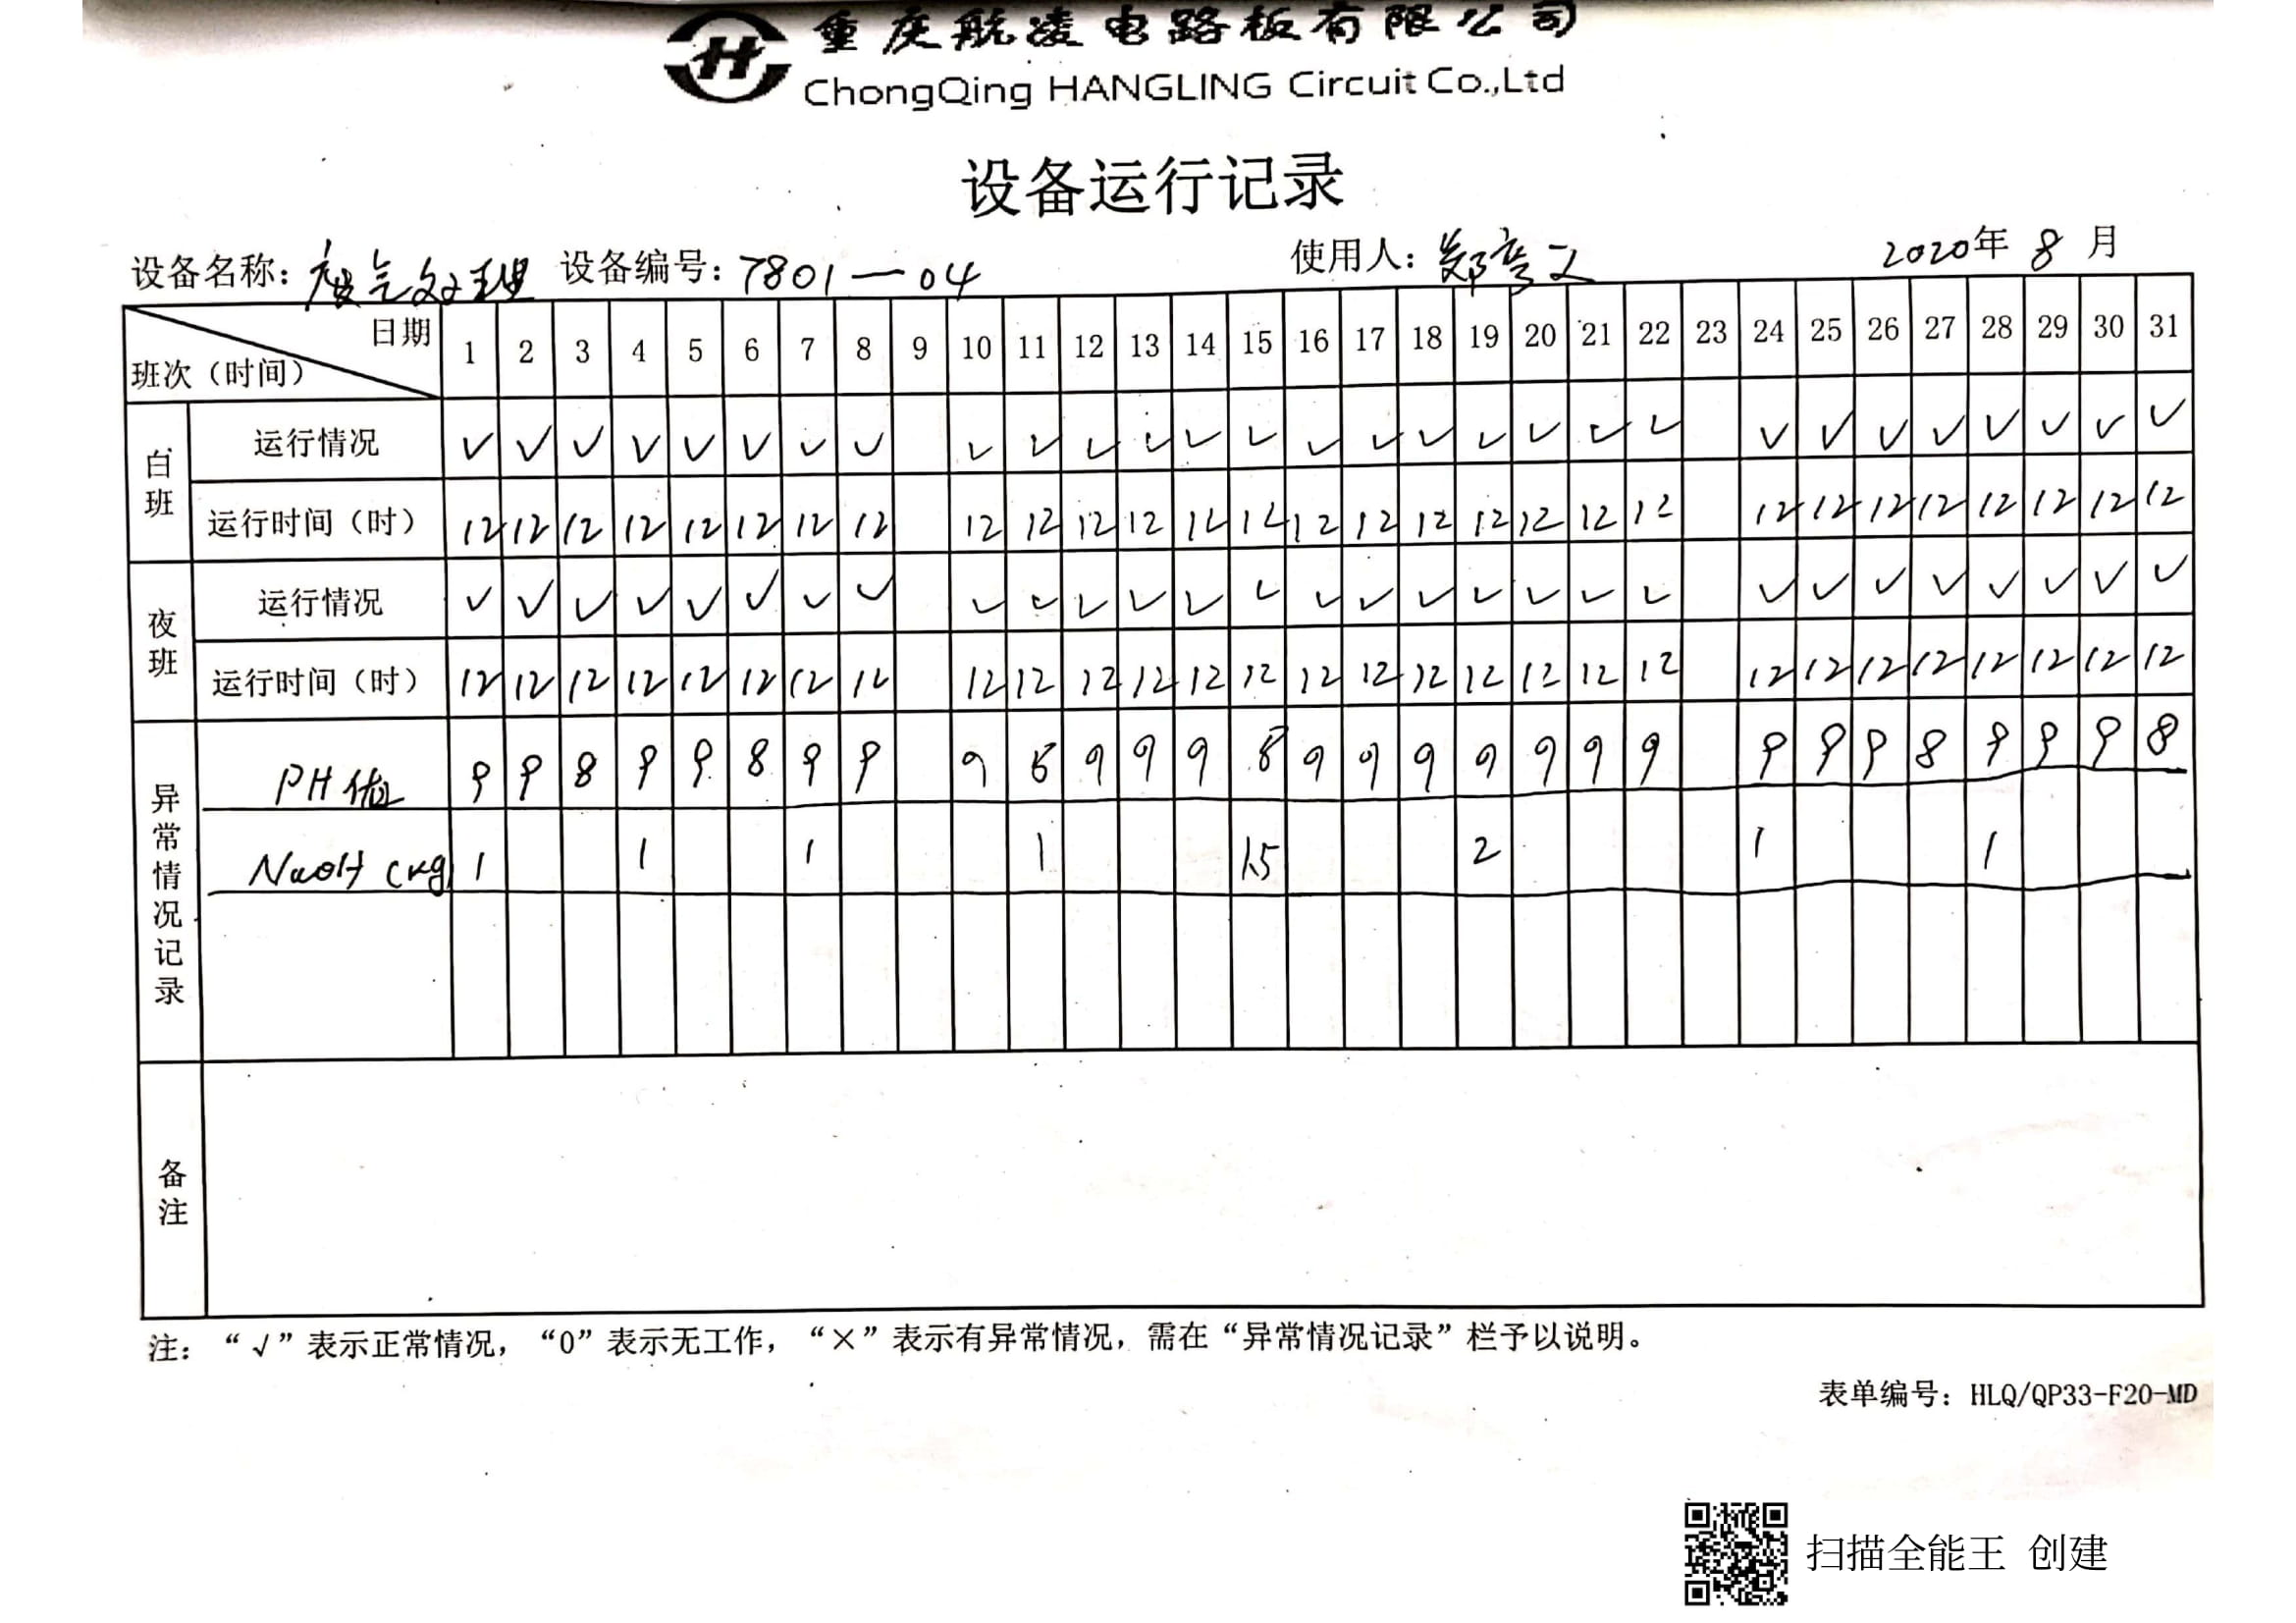 重庆航凌电路板有限公司
ChongQing HANGLING Circuit Co.,Ltd
设备运行记录
设备名称：废气处理 设备编号：7801—04 使用人： 2020年 8 月
日期
班次（时间） 1 2 3 4 5 6 7 8 9 10 11 12 13 14 15 16 17 18 19 20 21 22 23 24 25 26 27 28 29 30 31
白班
运行情况 ✓ ✓ ✓ ✓ ✓ ✓ ✓ ✓ ✓ ✓ ✓ ✓ ✓ ✓ ✓ ✓ ✓ ✓ ✓ ✓ ✓ ✓ ✓ ✓ ✓ ✓ ✓ ✓ ✓
运行时间（时） 12 12 12 12 12 12 12 12 12 12 12 12 12 12 12 12 12 12 12 12 12 12 12 12 12 12 12 12 12
夜班
运行情况 ✓ ✓ ✓ ✓ ✓ ✓ ✓ ✓ ✓ ✓ ✓ ✓ ✓ ✓ ✓ ✓ ✓ ✓ ✓ ✓ ✓ ✓ ✓ ✓ ✓ ✓ ✓ ✓ ✓
运行时间（时） 12 12 12 12 12 12 12 12 12 12 12 12 12 12 12 12 12 12 12 12 12 12 12 12 12 12 12 12 12
异常情况记录
PH值 9 9 8 9 9 8 9 9 9 8 9 9 9 8 9 9 9 9 9 9 9 9 9 9 8 9 9 9 8
NaOH (kg) 1 1 1 1 1.5 2 1 1
备注
注：“√”表示正常情况，“0”表示无工作，“×”表示有异常情况，需在“异常情况记录”栏予以说明。
表单编号：HLQ/QP33-F20-MD
扫描全能王 创建